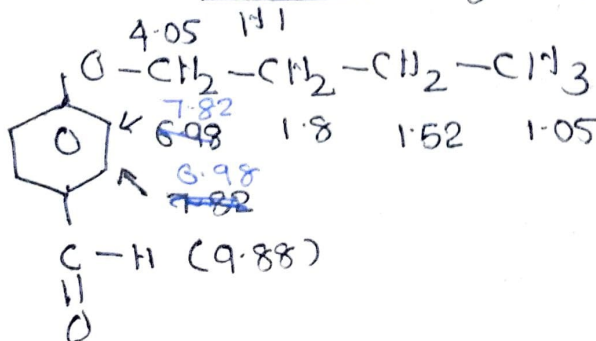 4.05 H1
O-CH2-CH2-CH2-CH3
7.82
6.98 1.8 1.52 1.05
O
6.98
7.82
C-H (9.88)
O